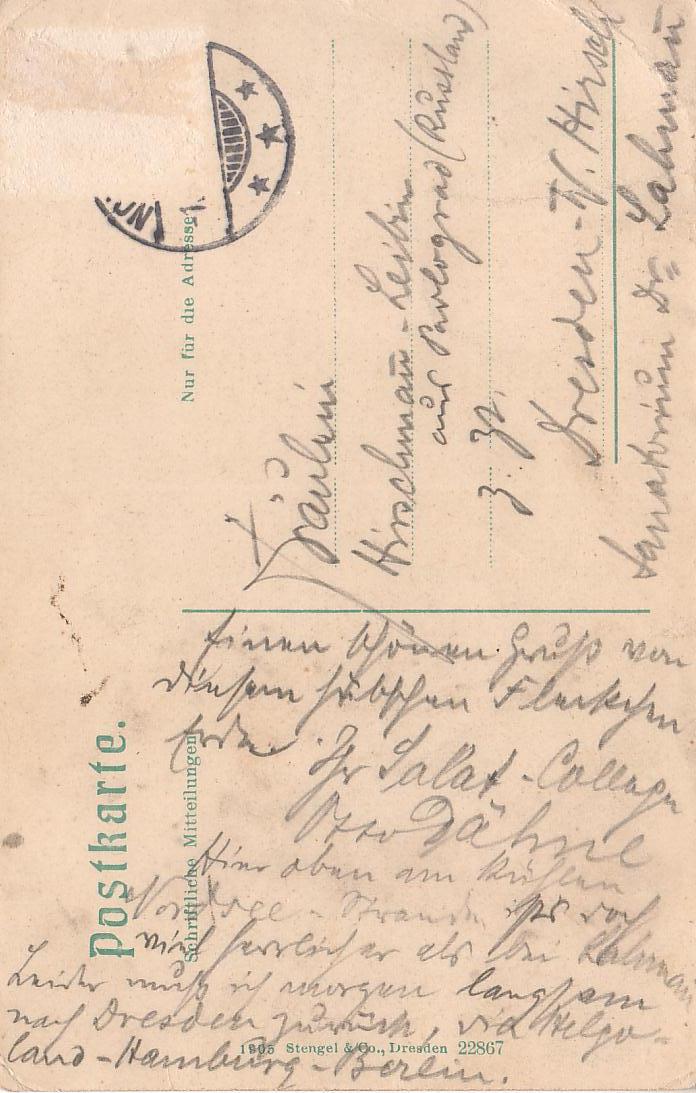 Postkarte.
Schriftliche Mitteilungen
Nur für die Adresse
Fräulein
Hirschman-Leibin
aus Pavlograd (Russland)
z. Zt.
Dresden-W. Hirsch
Sanatorium Dr. Lahman
Einen schönen Gruß von
diesem hübschen Fleckchen
Erde. Ihr Salat-College
Otto Dähne
Hier oben am kühlen
Nordsee-Strande ists doch
viel herrlicher als bei Lahman
Leider muß ich morgen langsam
nach Dresden zurück, via Helgo-
land-Hamburg-Berlin.
1905 Stengel & Co., Dresden 22867